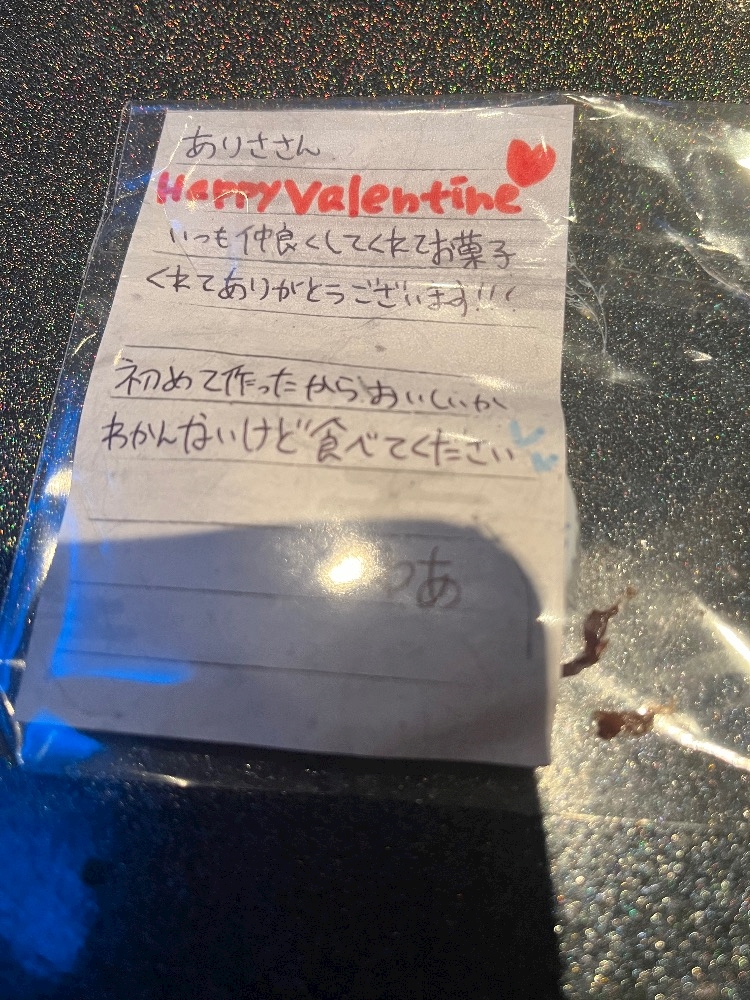 ありささん
Happy Valentine
いつも仲良くしてくれてお菓子
くれてありがとうございます!!!
初めて作ったからおいしいか
わかんないけど食べてください